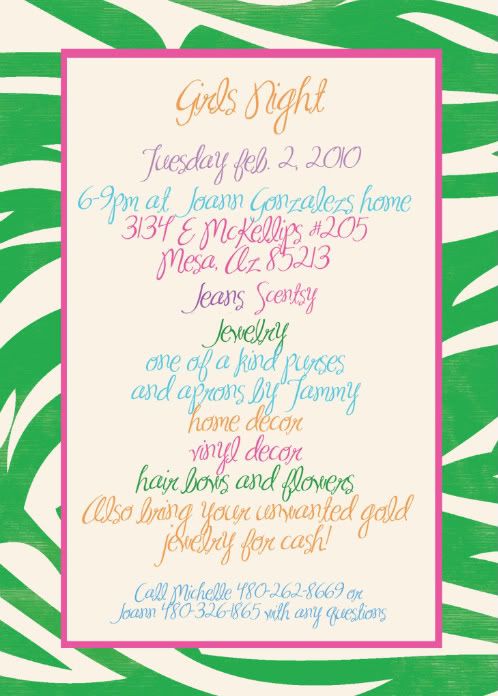 Girls Night
Tuesday feb. 2, 2010
6-9pm at Joann Gonzalezs home
3134 E McKellips #205
Mesa, Az 85213
Jeans Scentsy
Jewelry
one of a kind purses
and aprons by Tammy
home decor
vinyl decor
hair bows and flowers
Also bring your unwanted gold
jewelry for cash!
Call Michelle 480-262-8669 or
Joann 480-326-1865 with any questions